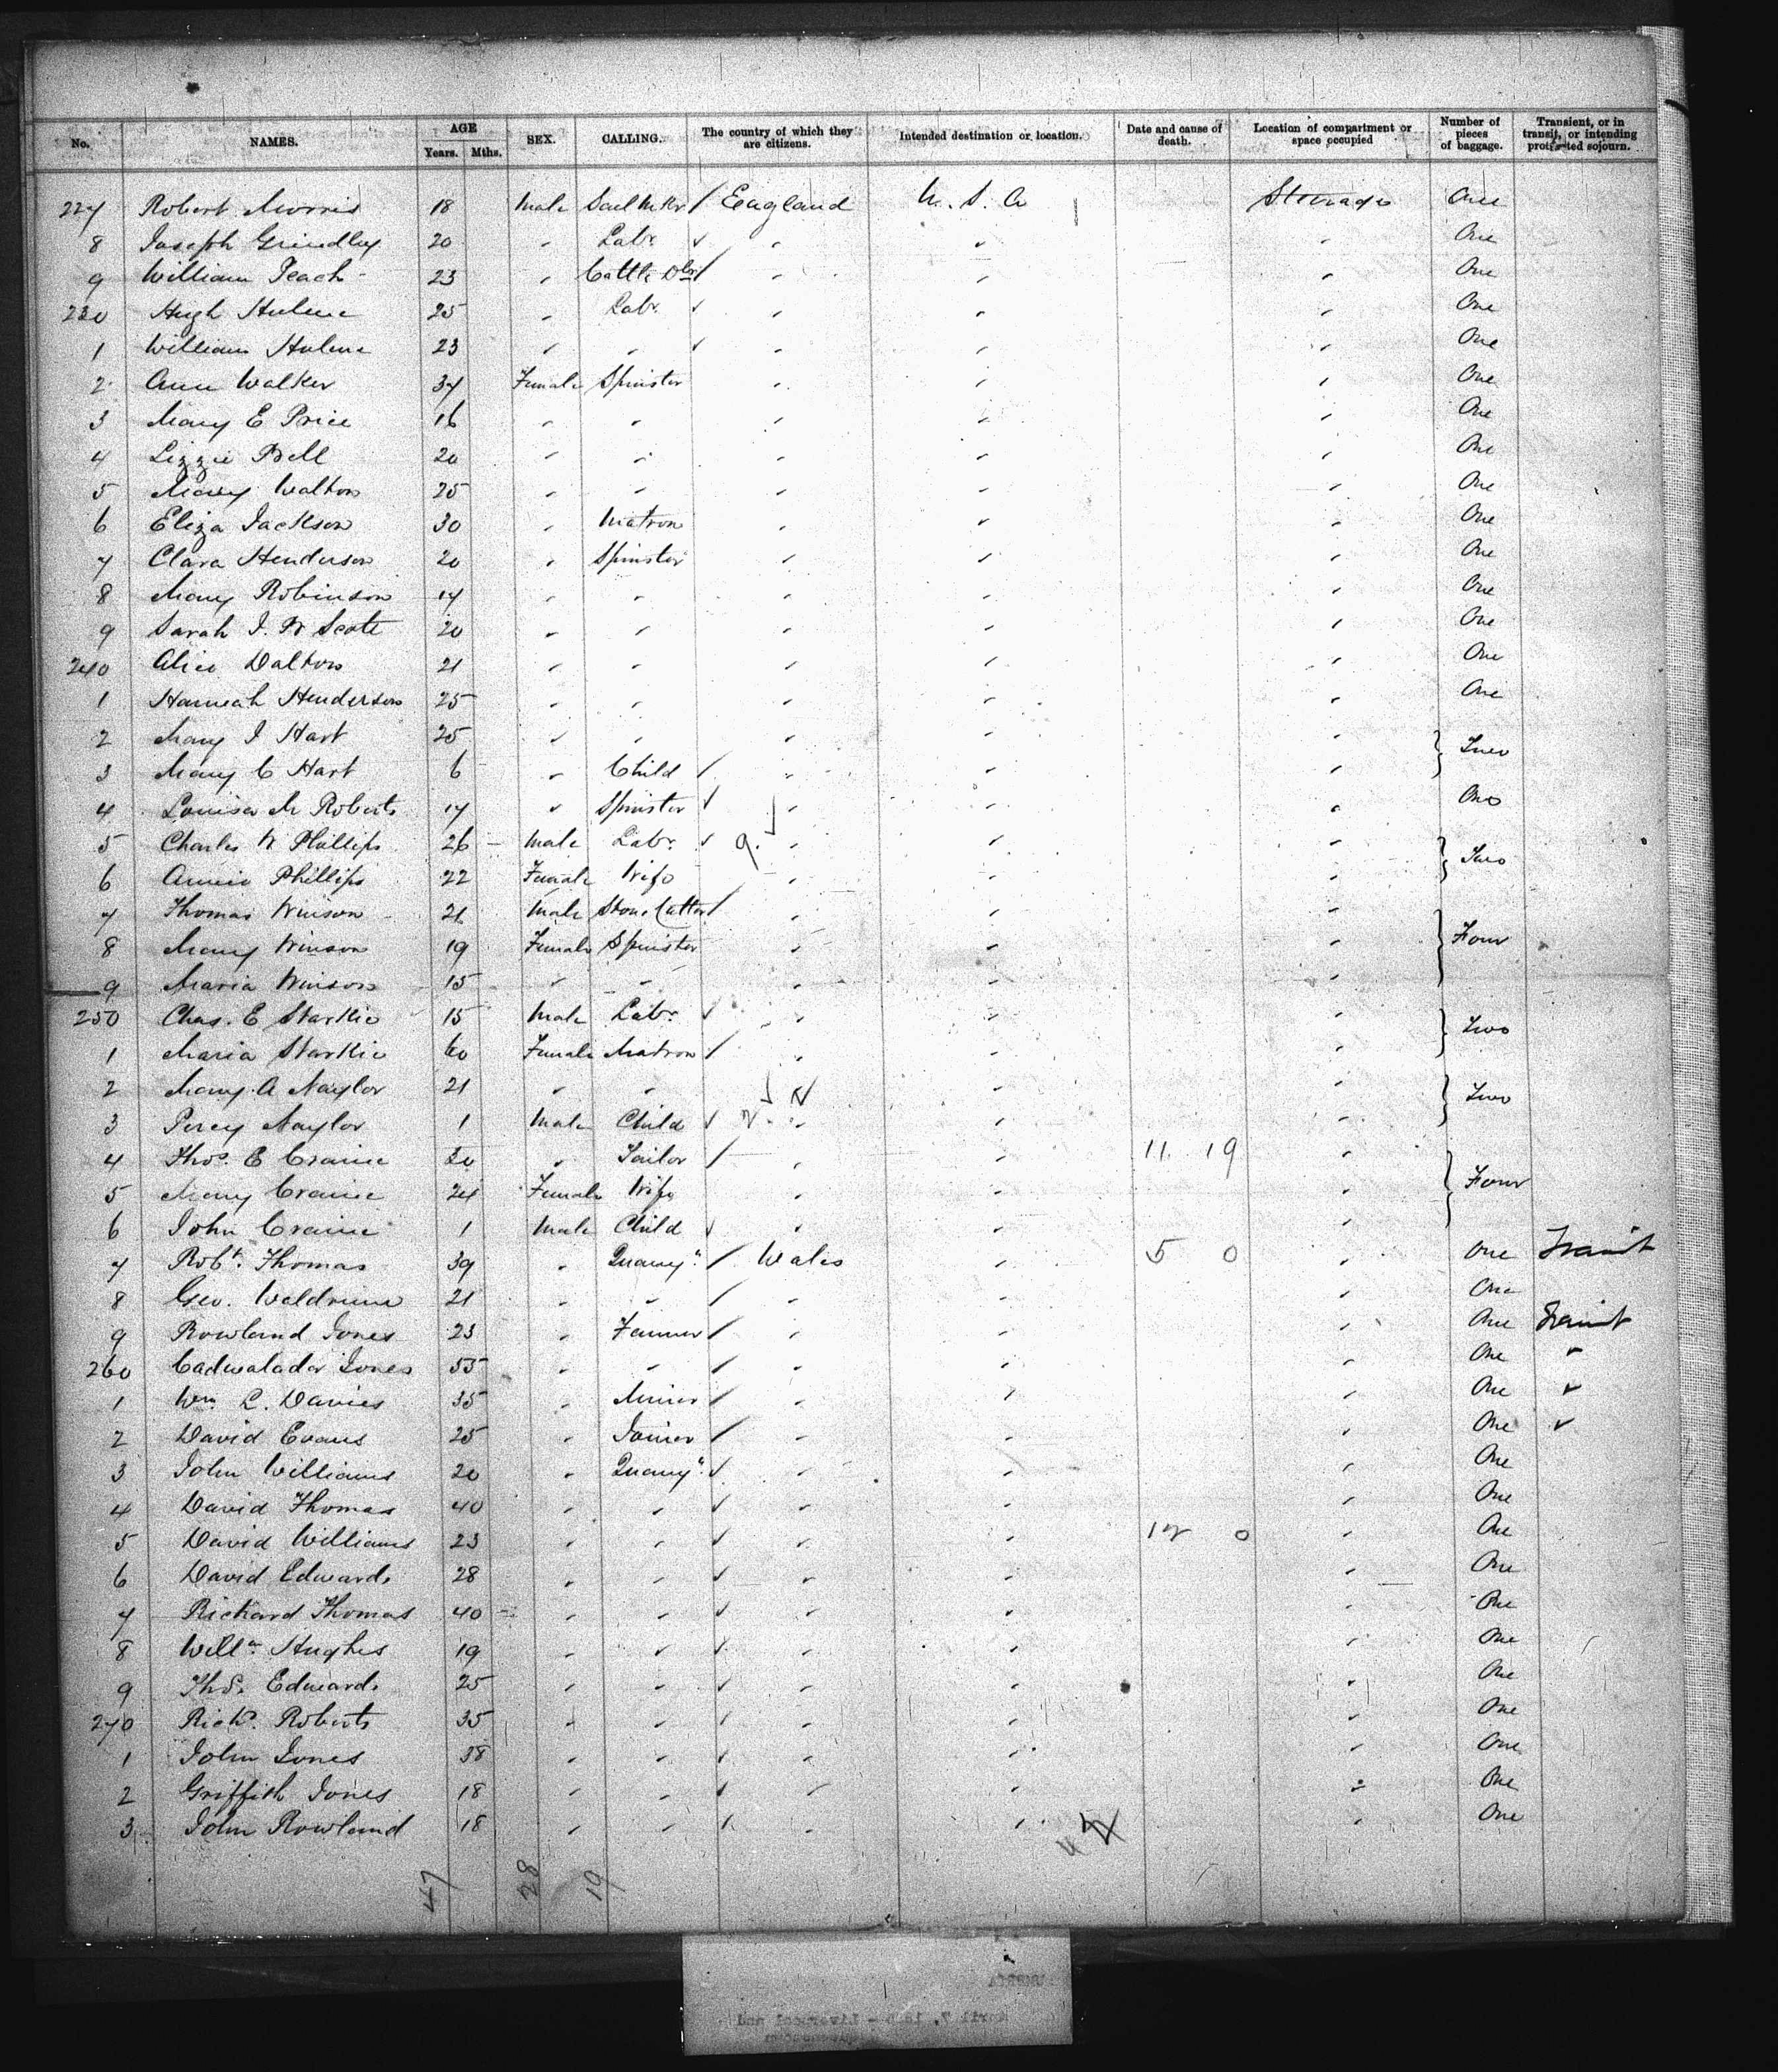 No. NAMES. AGE Years. Mths. SEX. CALLING. The country of which they are citizens. Intended destination or location. Date and cause of death. Location of compartment or space occupied Number of pieces of baggage. Transient, or in transit, or intending protracted sojourn.
227 Robert Morris 18 Male Sail Mkr England U.S.A Steerage One
8 Joseph Grindley 20 " Labr. " " " One
9 William Peach 23 " Cattle Dlr " " " One
230 Hugh Hulme 25 " Labr. " " " One
1 William Hulme 23 " " " " " One
2 Ann Walker 37 Female Spinster " " " One
3 Mary E Price 16 " " " " " One
4 Lizzie Bell 20 " " " " " One
5 Mary Walton 25 " " " " " One
6 Eliza Jackson 30 " Matron " " " One
7 Clara Henderson 20 " Spinster " " " One
8 Mary Robinson 17 " " " " " One
9 Sarah J. B Scott 20 " " " " " One
240 Alice Dalton 21 " " " " " One
1 Hannah Henderson 25 " " " " " One
2 Mary J Hart 25 " " " " " Two
3 Mary C Hart 6 " Child " " "
4 Louisa M Roberts 17 " Spinster " " " One
5 Charles W Phillips 26 Male Labr. 9. " " " Two
6 Annie Phillips 22 Female Wife " " "
7 Thomas Winson 21 Male Stone Cutter " " " Four
8 Mary Winson 19 Female Spinster " " "
9 Maria Winson 15 " " " " "
250 Chas. E Starkie 15 Male Labr. " " " Two
1 Maria Starkie 60 Female Matron " " "
2 Mary A Naylor 21 " " " " Two
3 Percy Naylor 1 Male Child " " "
4 Thos. E Craine 30 " Tailor " " 11. 19 " Four
5 Mary Craine 24 Female Wife " " "
6 John Craine 1 Male Child " " "
7 Robt. Thomas 39 " Quarry" Wales " 5 0 " One Transit
8 Geo. 21 " " " " " One
9 Rowland Jones 23 " Farmer " " " One Transit
260 Cadwalader Jones 55 " " " " " One "
1 Wm L. Davies 35 " Miner " " " One "
2 David Evans 25 " Joiner " " " One "
3 John Williams 20 " Quarry" " " " One
4 David Thomas 40 " " " " " One
5 David Williams 23 " " " " 12 0 " One
6 David Edwards 28 " " " " " One
7 Richard Thomas 40 " " " " " One
8 Willm Hughes 19 " " " " " One
9 Thos. Edwards 25 " " " " " One
270 Richd. Roberts 35 " " " " " One
1 John Jones 38 " " " " " One
2 Griffith Jones 18 " " " " " One
3 John Rowland 18 " " " " " One
47 28 19